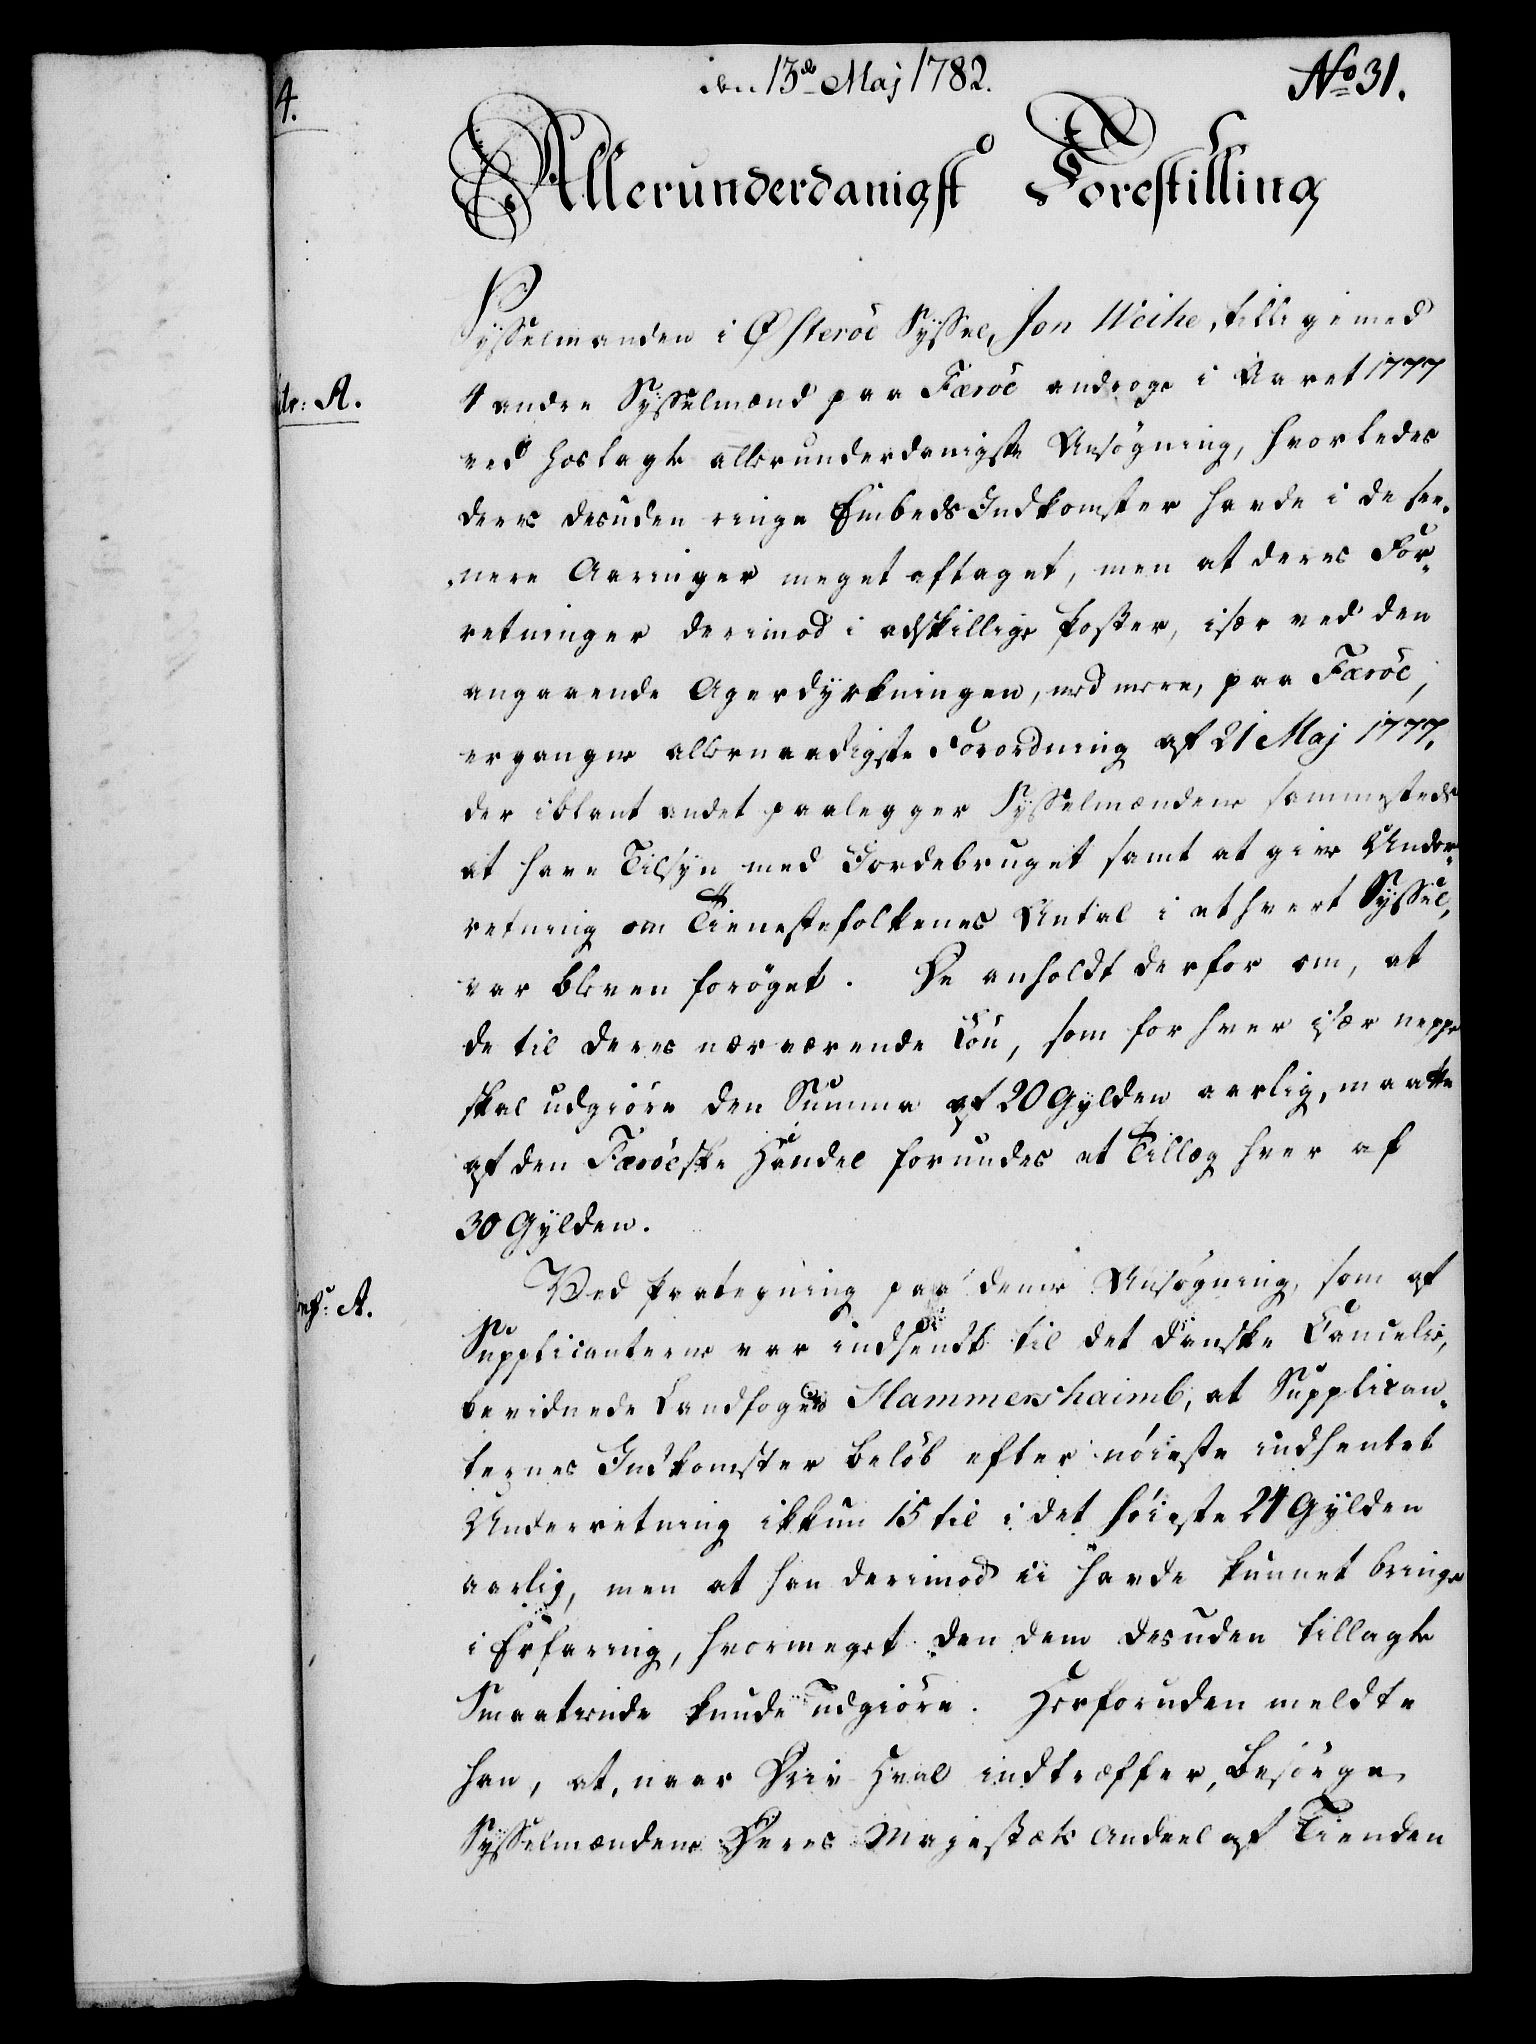 den 13de Maj 1782.
No 31.
4.
Allerunderdanigst Forestilling
Sysselmanden i Østeröe Syssel, Jon Weihe, tilligemed
Ltr: A.
4 andre Sysselmænd paa Færöe androge i Aaret 1777
ved hoslagte allerunderdanigste Ansögning, hvorledes
deres desuden ringe Embeds Indkomster havde i de see-
nere Aaringer meget aftaget, men at deres For-
retninger derimod i adskillige Poster, især ved den
angaaende Agerdyrkningen, med mere, paa Færöe,
ergangne allernaadigste Forordning af 21 Maj 1777.
der iblant andet paalegger Sysselmændene sammesteds
at have Tilsyn med Jordebruget samt at give Under-
retning om Tienestefolkenes Antal i ethvert Syssel,
var bleven foröget. De anholdt derfor om, at
de til deres nærværende Lön, som for hver især neppe
skal udgiöre den Summa af 20 Gylden aarlig, maatte
af den Færöeske Handel forundes et Tillæg hver af
30 Gylden.
Ved Paategning paa denne Ansögning, som af
A.
Supplicanterne var indsendt til det danske Cancelie,
bevidnede Landfoged Hammershaimb, at Supplican-
ternes Indkomster belöb efter nöieste indhentet
Underretning ikkun 15 til i det höieste 24 Gylden
aarlig, men at han derimod ei havde kunnet bringe
i Erfaring, hvormeget den dem desuden tillagte
Smaatiende kunde udgiöre. Herforuden meldte
han, at, naar Griv Hval indtræffer, besörge
Sysselmændene Deres Majestæts Andeel af Tienden